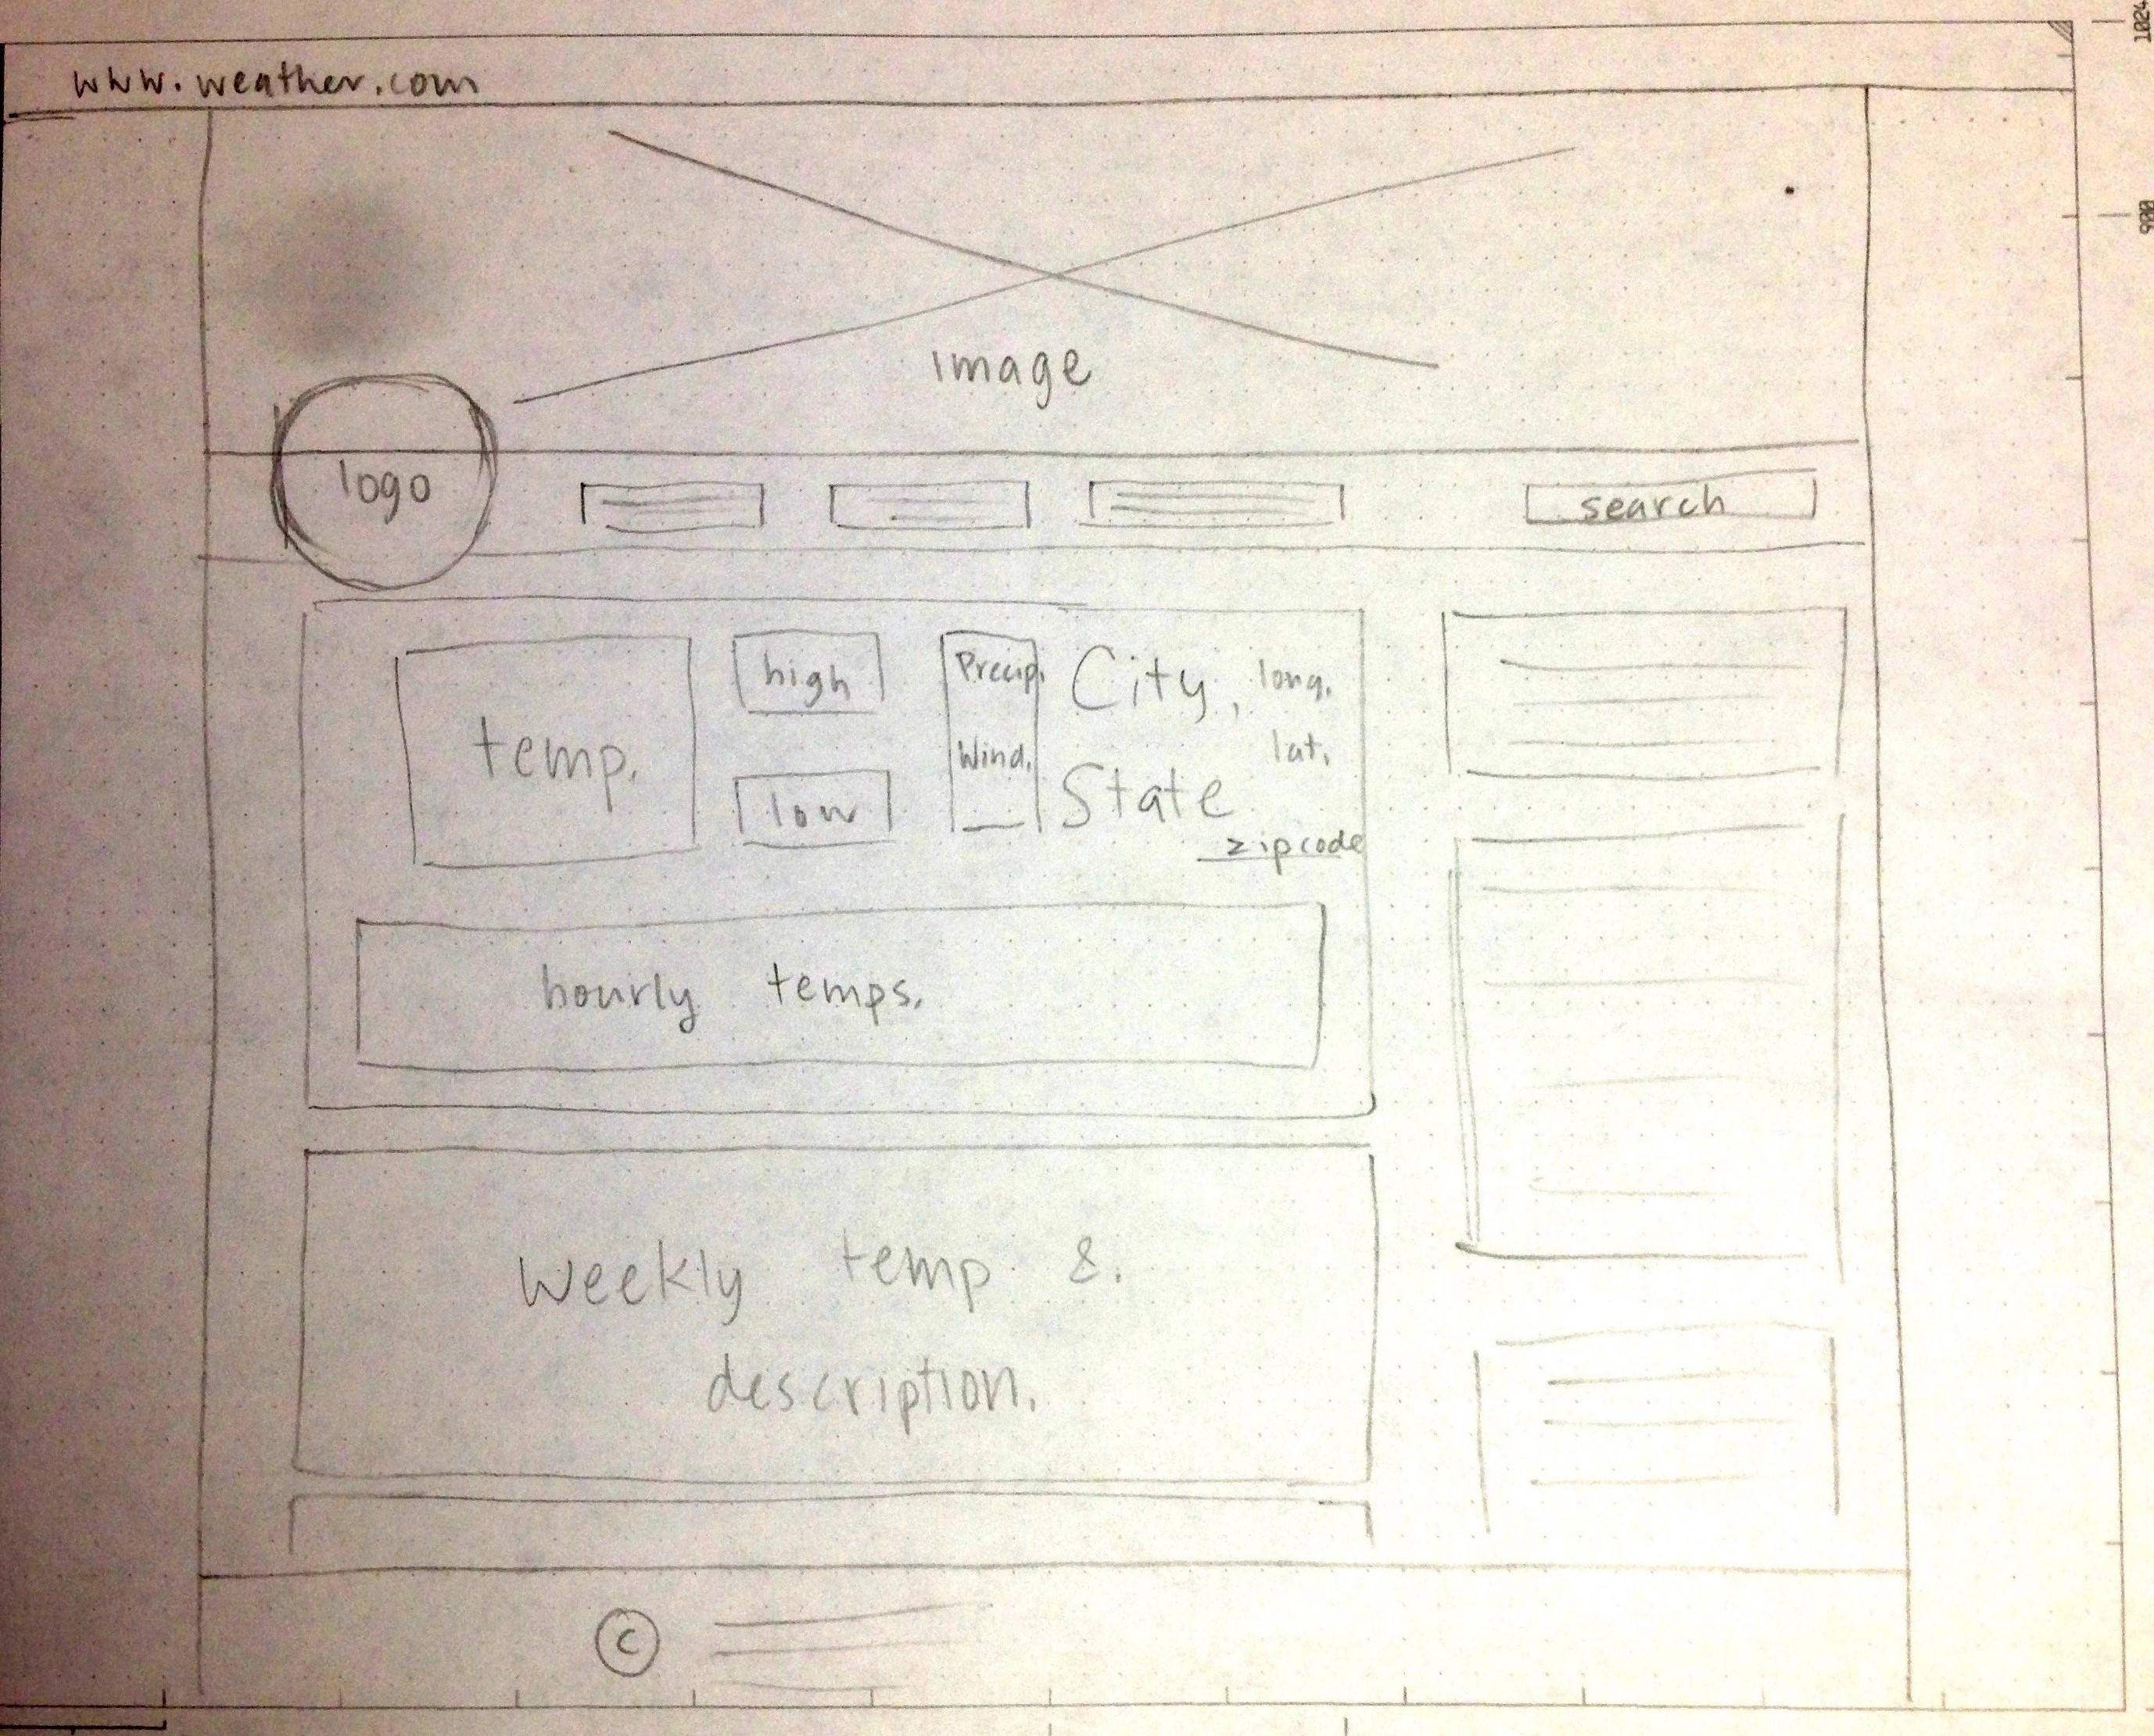 1024
www.weather.com
900
image
logo
search
temp.
high
low
Precip.
Wind.
City,
State
long.
lat.
zipcode
hourly temps.
Weekly temp &.
description.
©